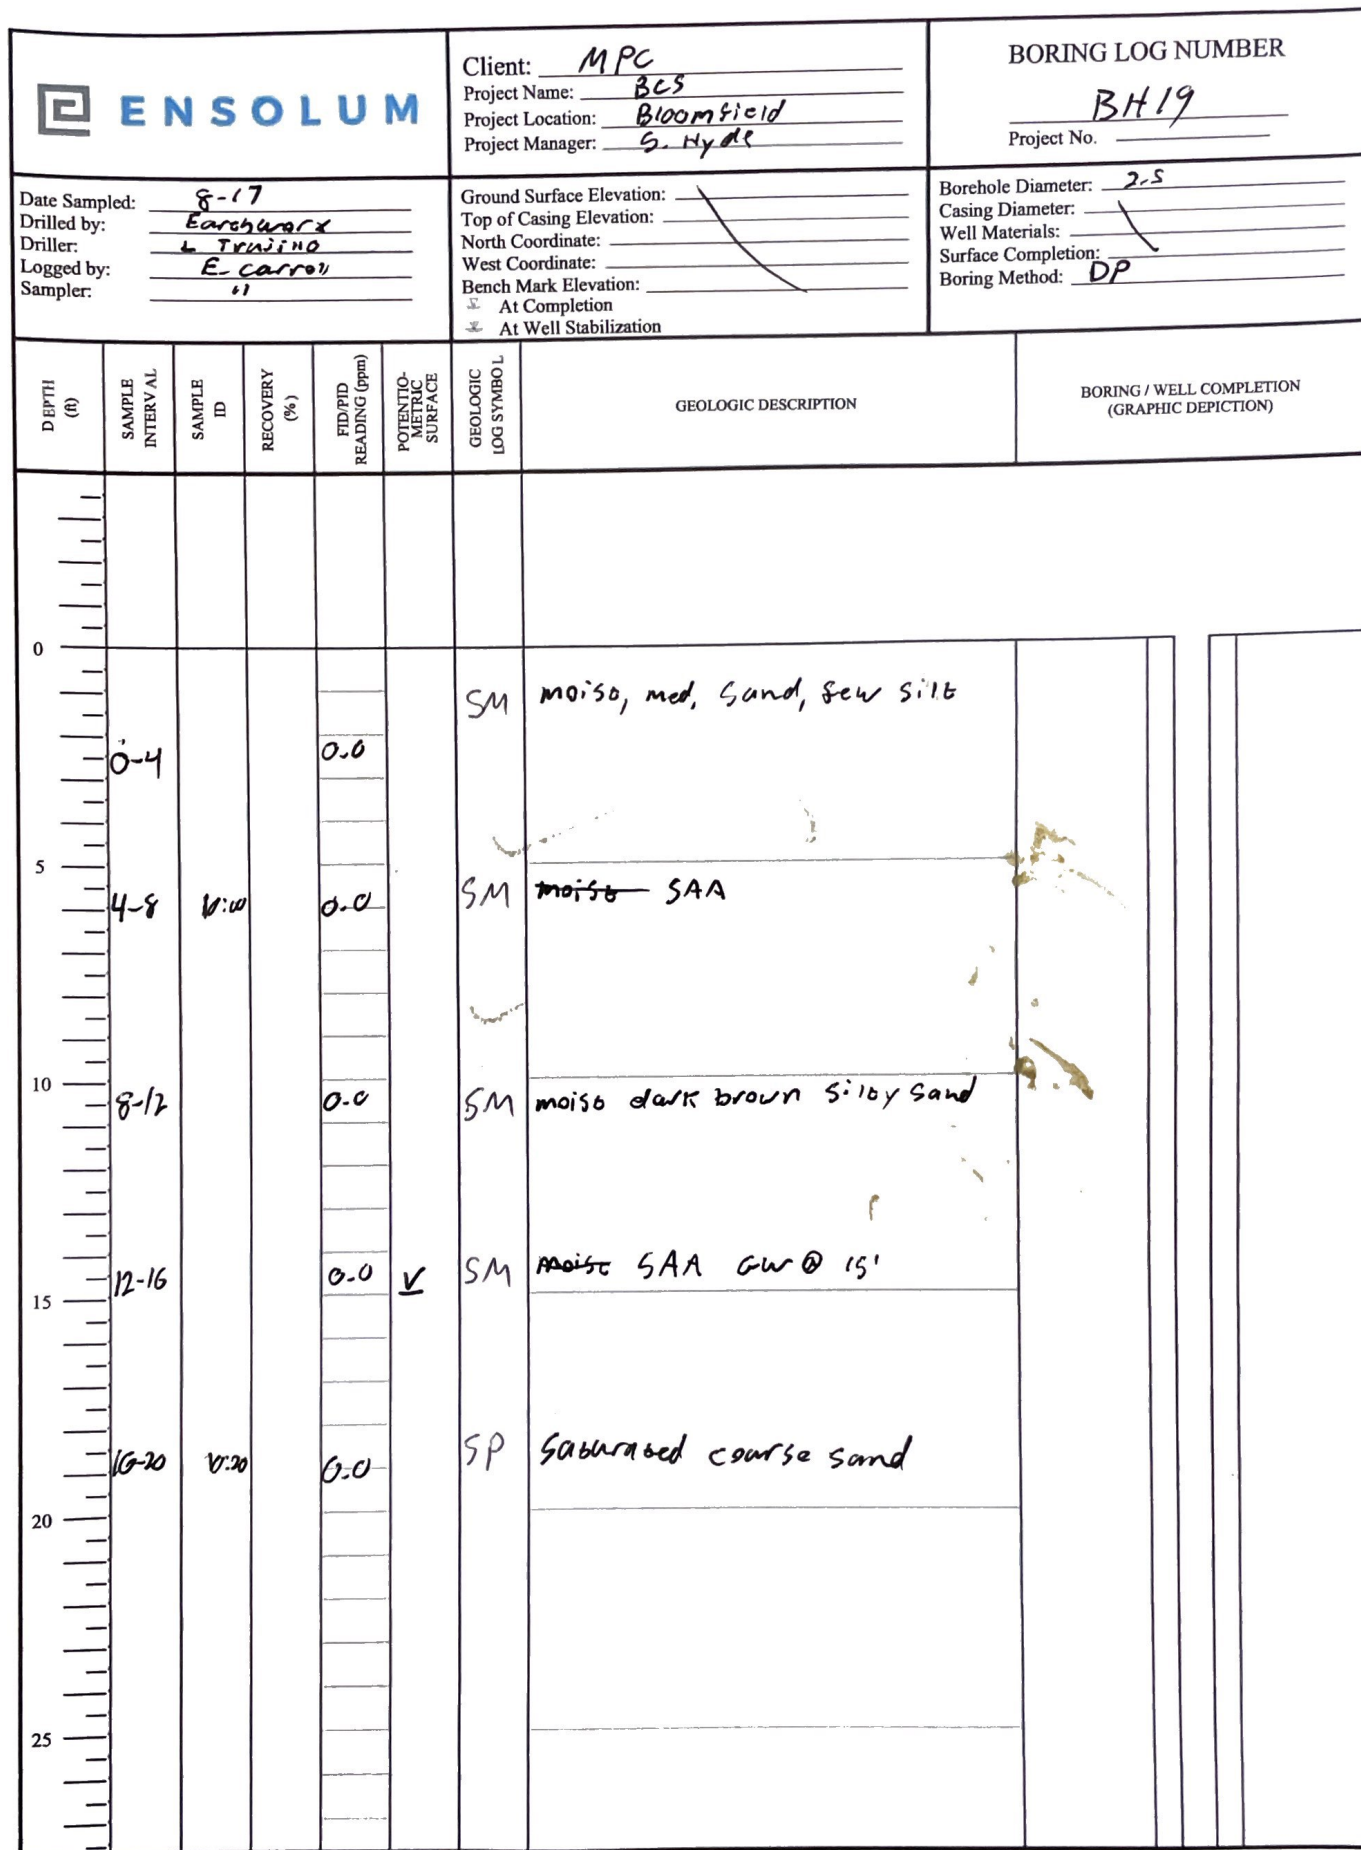 ENSOLUM
Client: MPC
Project Name: BCS
Project Location: Bloomfield
Project Manager: S. Hyde
BORING LOG NUMBER
BH19
Project No.
Date Sampled: 8-17
Drilled by: Earthworx
Driller: L Trujillo
Logged by: E. Carroll
Sampler: "
Ground Surface Elevation:
Top of Casing Elevation:
North Coordinate:
West Coordinate:
Bench Mark Elevation:
At Completion
At Well Stabilization
Borehole Diameter: 2.5
Casing Diameter:
Well Materials:
Surface Completion:
Boring Method: DP
DEPTH (ft)
SAMPLE INTERVAL
SAMPLE ID
RECOVERY (%)
FID/PID READING (ppm)
POTENTIO-METRIC SURFACE
GEOLOGIC LOG SYMBOL
GEOLOGIC DESCRIPTION
BORING / WELL COMPLETION
(GRAPHIC DEPICTION)
0
SM moist, med, sand, few silt
0-4 0.0
5
4-8 0.0 SM moist SAA
10
8-12 0.0 SM moist dark brown silty sand
12-16 0.0 V SM moist SAA GW @ 15'
15
16-20 0.0 SP saturated coarse sand
20
25